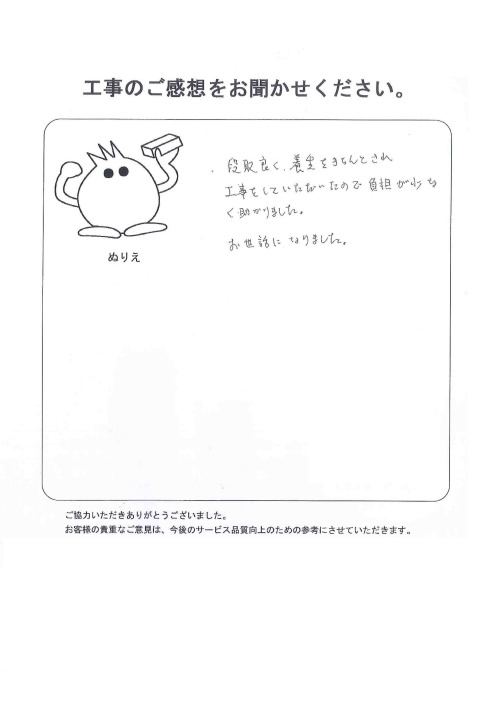 工事のご感想をお聞かせください。
段取良く、養生をきちんとされ
工事をしていただいたので負担が少な
く助かりました。
お世話になりました。
ぬりえ
ご協力いただきありがとうございました。
お客様の貴重なご意見は、今後のサービス品質向上のための参考にさせていただきます。